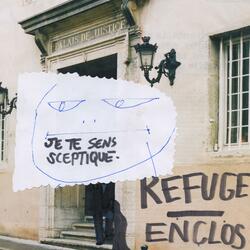 PALAIS DE JUSTICE
JE TE SENS
SCEPTIQUE.
REFUGE
ENCLOS